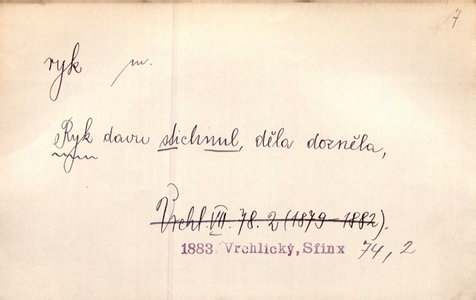 7
ryk m.
Ryk davu stichnul, děla dozněla,
Vrchl. VII. 78. 2 (1879–1882).
1883 Vrchlický, Sfinx 74, 2